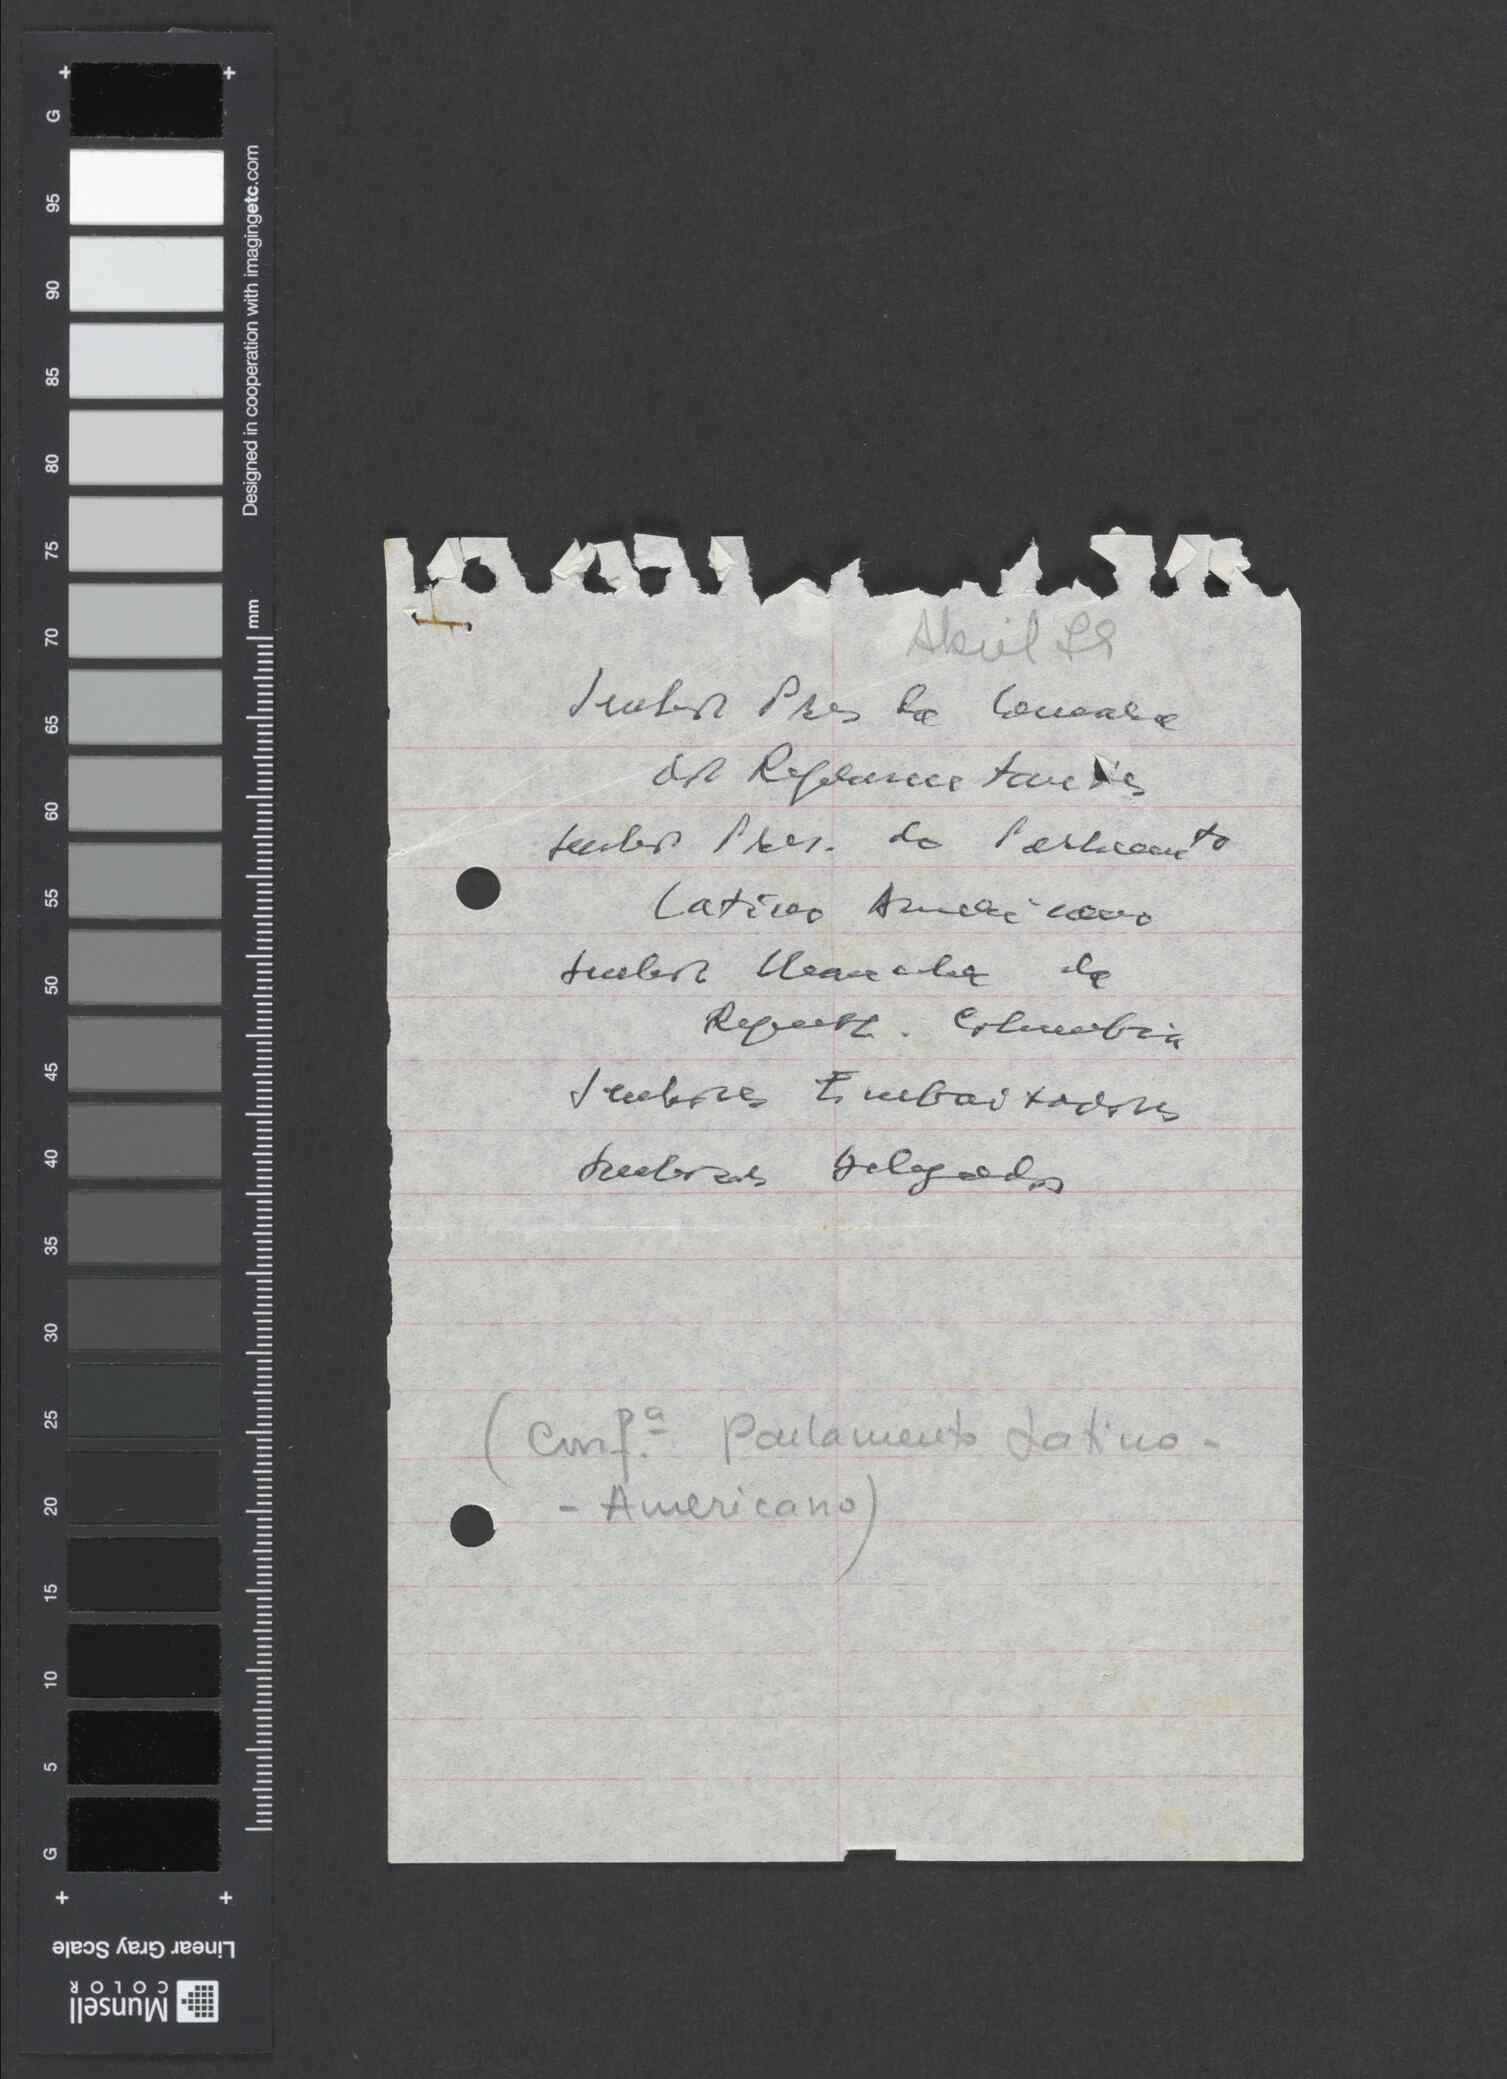 G
95
90
85
80
75
70
65
60
55
50
45
40
35
30
25
20
15
10
5
G
Designed in cooperation with imagingetc.com
mm
Linear Gray Scale
Munsell
COLOR
Abril
Senhor Pres da Camara
dos Representantes
Senhor Pres. do Parlamento
Latino Americano
Senhor da
Republ. Columbia
Senhores Embaixadores
Senhores Delegados
(Conf.ª Parlamento Latino-
- Americano)